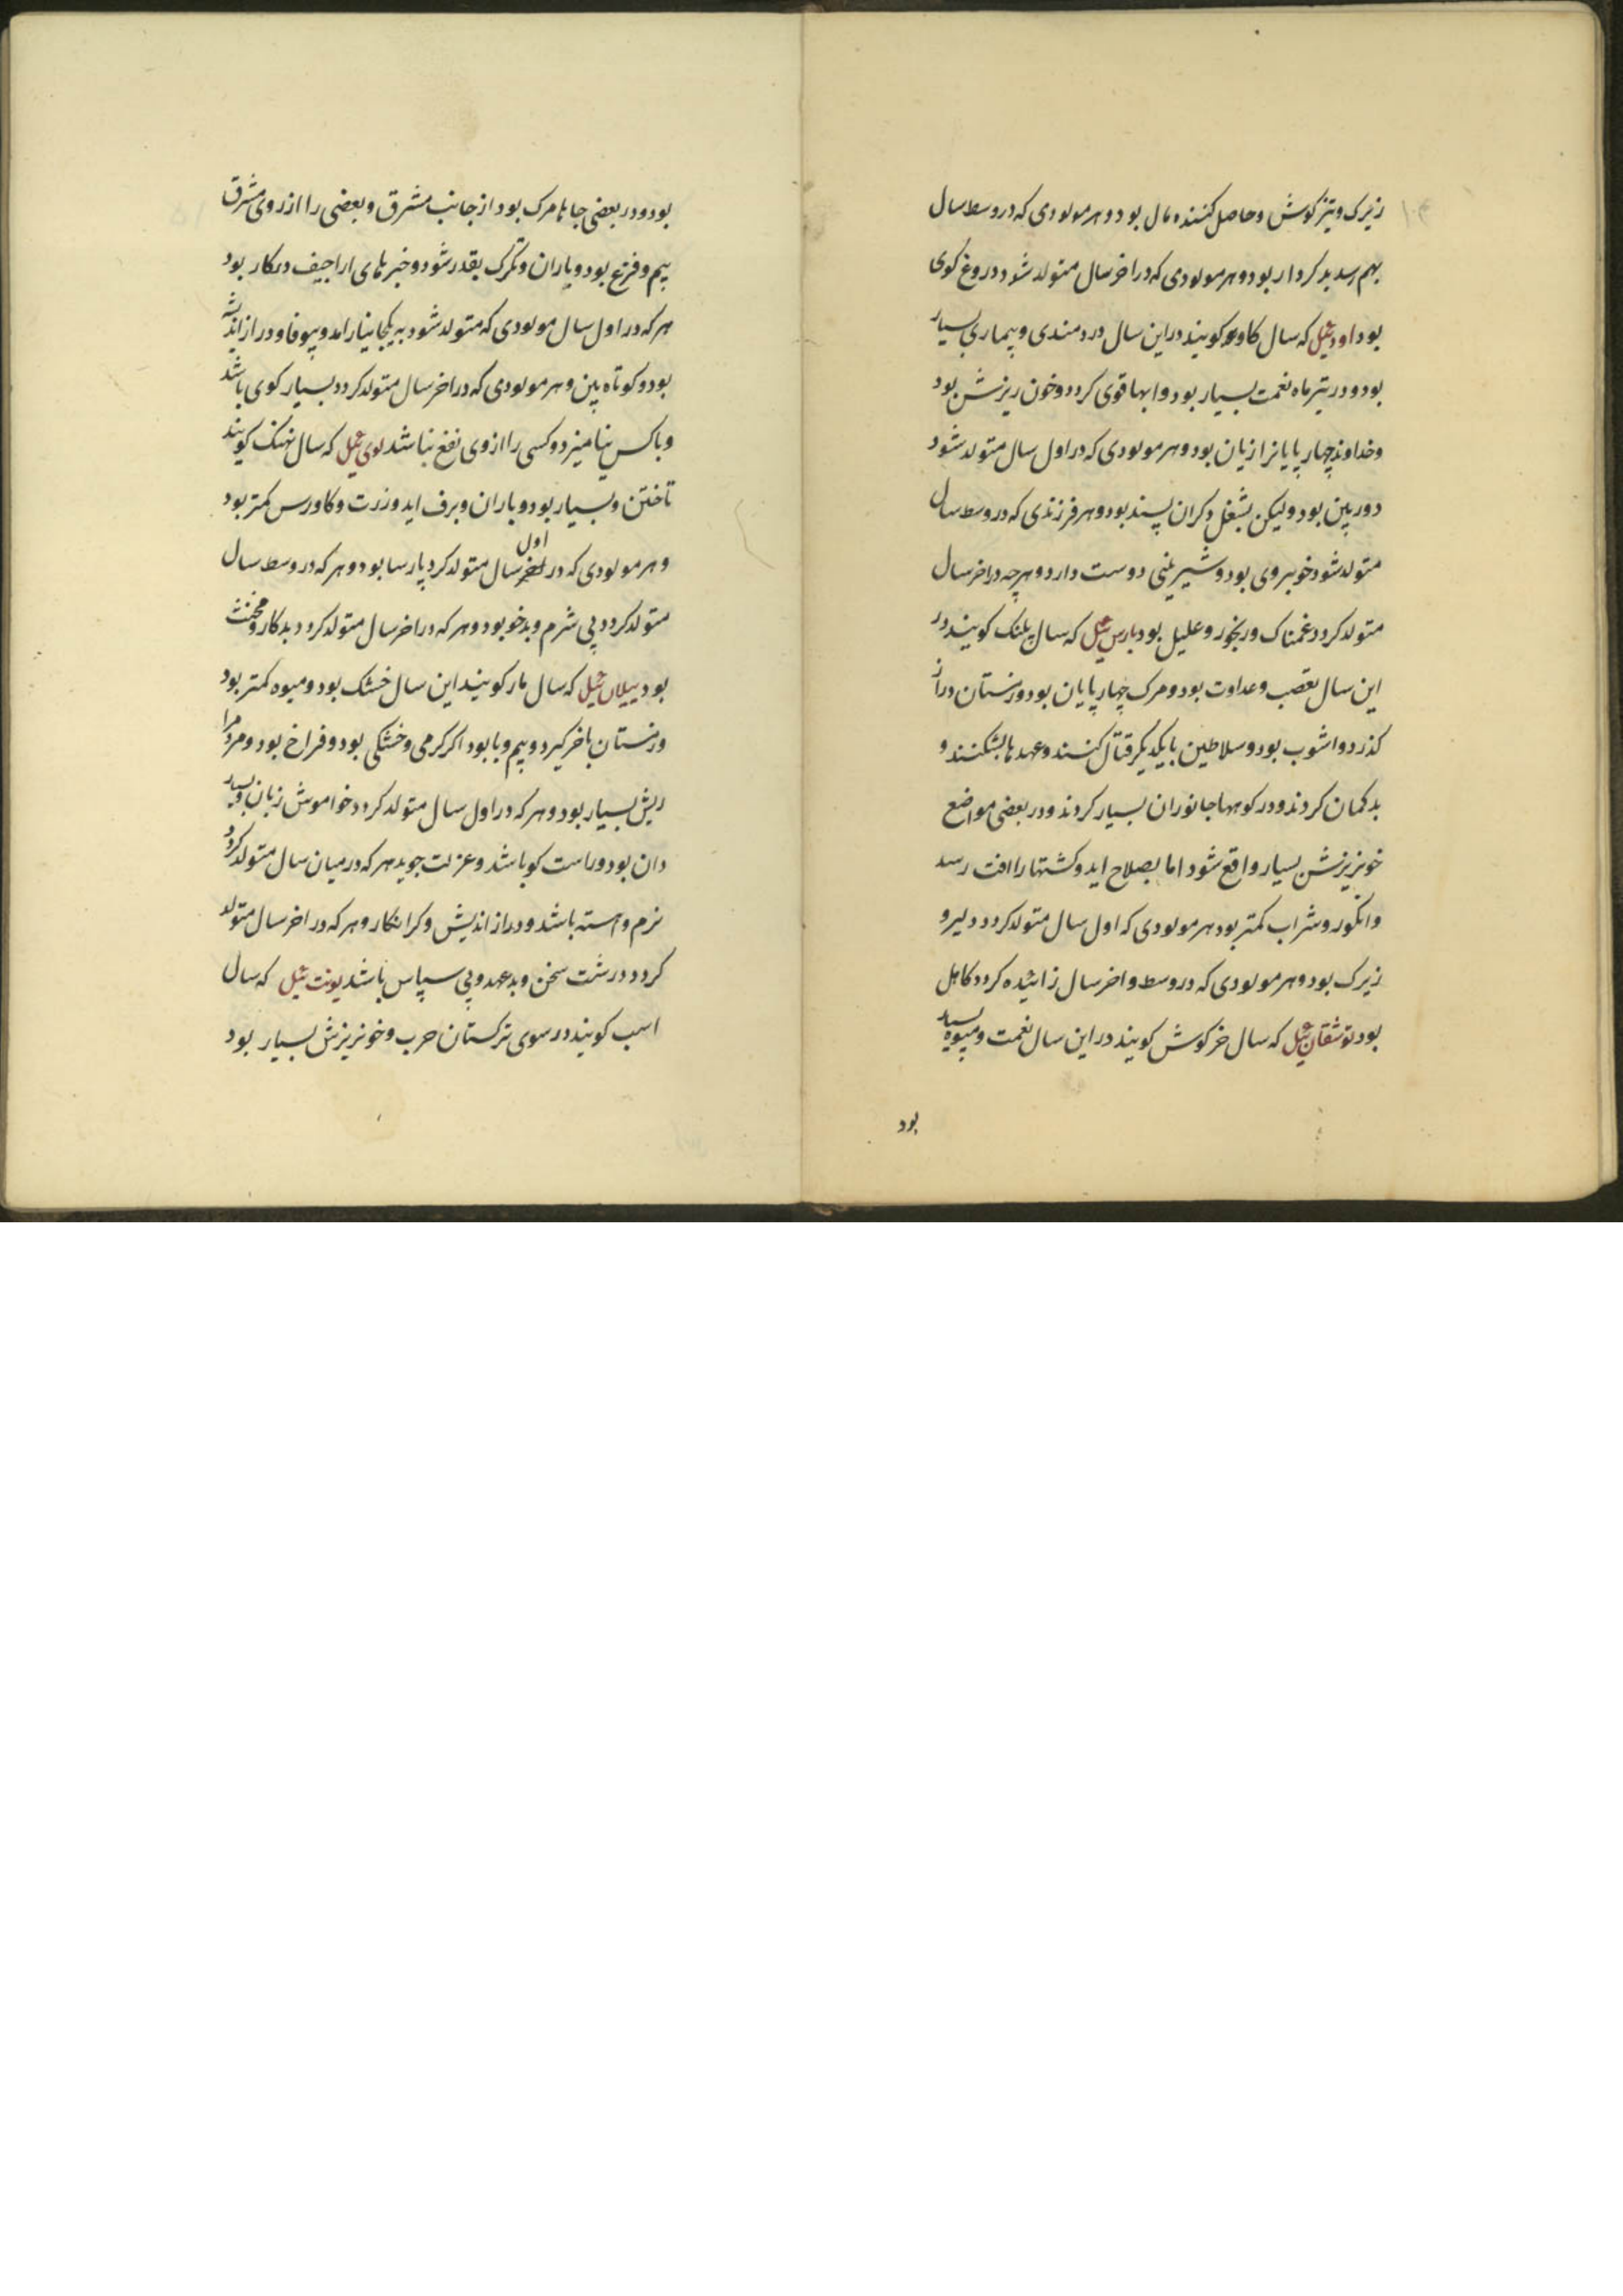 زیرک و تیز کوش و حاصل کننده مال بود و هر مولودی که در وسط سال
بهم رسد بد کردار بود و هر مولودی که در اخر سال متولد شود دروغ کوی
بود اود ئیل که سال کاو کویند در این سال دردمندی و بیماری بسیار
بود و در تیر ماه نعمت بسیار بود و ابها قوی کردد و خون ریزش بود
و خداوند چهار پایانرا زیان بود و هر مولودی که در اول سال متولد شود
دور بین بود ولیکن بشغل دکران پسند بود و هر فرزندی که در وسط سال
متولد شود خوبروی بود و شیرینی دوست دارد و هرچه در اخر سال
متولد کردد غمناک و رنجور و علیل بود بارس ئیل که سال پلنک کویند در
این سال تعصب و عداوت بود و مرک چهار پایان بود و زمستان دراز
کذرد و اشوب بود و سلاطین با یکدیکر قتال کنند و عهد ها بشکنند و
بد کمان کردند و در کوهها جانوران بسیار کردند و در بعضی مواضع
خونریزش بسیار واقع شود اما بصلاح اید و کشتها را افت رسد
و انکور و شراب کمتر بود هر مولودی که اول سال متولد کردد دلیر و
زیرک بود و هر مولودی که در وسط و اخر سال زائیده کردد کاهل
بود توشقان ئیل که سال خرکوش کویند در این سال نعمت و میوه بسیار
بود
بود و در بعضی جاها مرک بود از جانب مشرق و بعضی را از روی مشرق
بیم و فزع بود و باران و تکرک بقدر شود و خبر های اراجیف در کار بود
هر که در اول سال مولودی که متولد شود به یکجا نیارامد و بیوفا و دراز اندیشه
بود و کوتاه بین و هر مولودی که در اخر سال متولد کردد بسیار کوی باشد
و با کس نیامیزد و کسی را از وی نفع نباشد لوی ئیل که سال نهنک کویند
تاختن و بسیار بود و باران و برف اید و ذرت و کاورس کمتر بود
و هر مولودی که در اول سال متولد کردد پارسا بود و هر که در وسط سال
متولد کردد بی شرم و بدخو بود و هر که در اخر سال متولد کردد بد کار و مخنث
بود ییلان ئیل که سال مار کویند این سال خشک بود و میوه کمتر بود
و زمستان باخر کیرد و بیم وبا بود اکر کرمی و خشکی بود و فراخ بود و مردم را
ریش بسیار بود و هر که در اول سال متولد کردد خواموش زبان و بسیار
دان بود و راست کو باشد و عزلت جوید هر که در میان سال متولد کردد
نرم و اهسته باشد و دراز اندیش و کرانکار و هر که در اخر سال متولد
کردد درشت سخن و بد عهد و بی سپاس باشد یونت ئیل که سال
اسب کویند در سوی ترکستان حرب و خونریزش بسیار بود